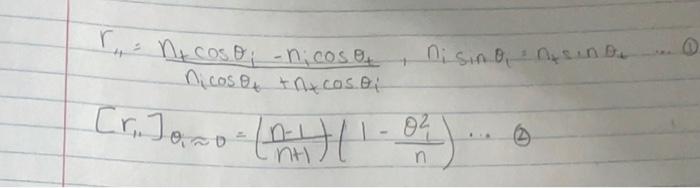 r₁₁ = (nₜcosθᵢ - nᵢcosθₜ) / (nᵢcosθₜ + nₜcosθᵢ) , nᵢ sinθᵢ = nₜ sinθₜ ... ①
[r₁₁]θᵢ≈0 = ((n-1)/(n+1)) (1 - θᵢ²/n) ... ②